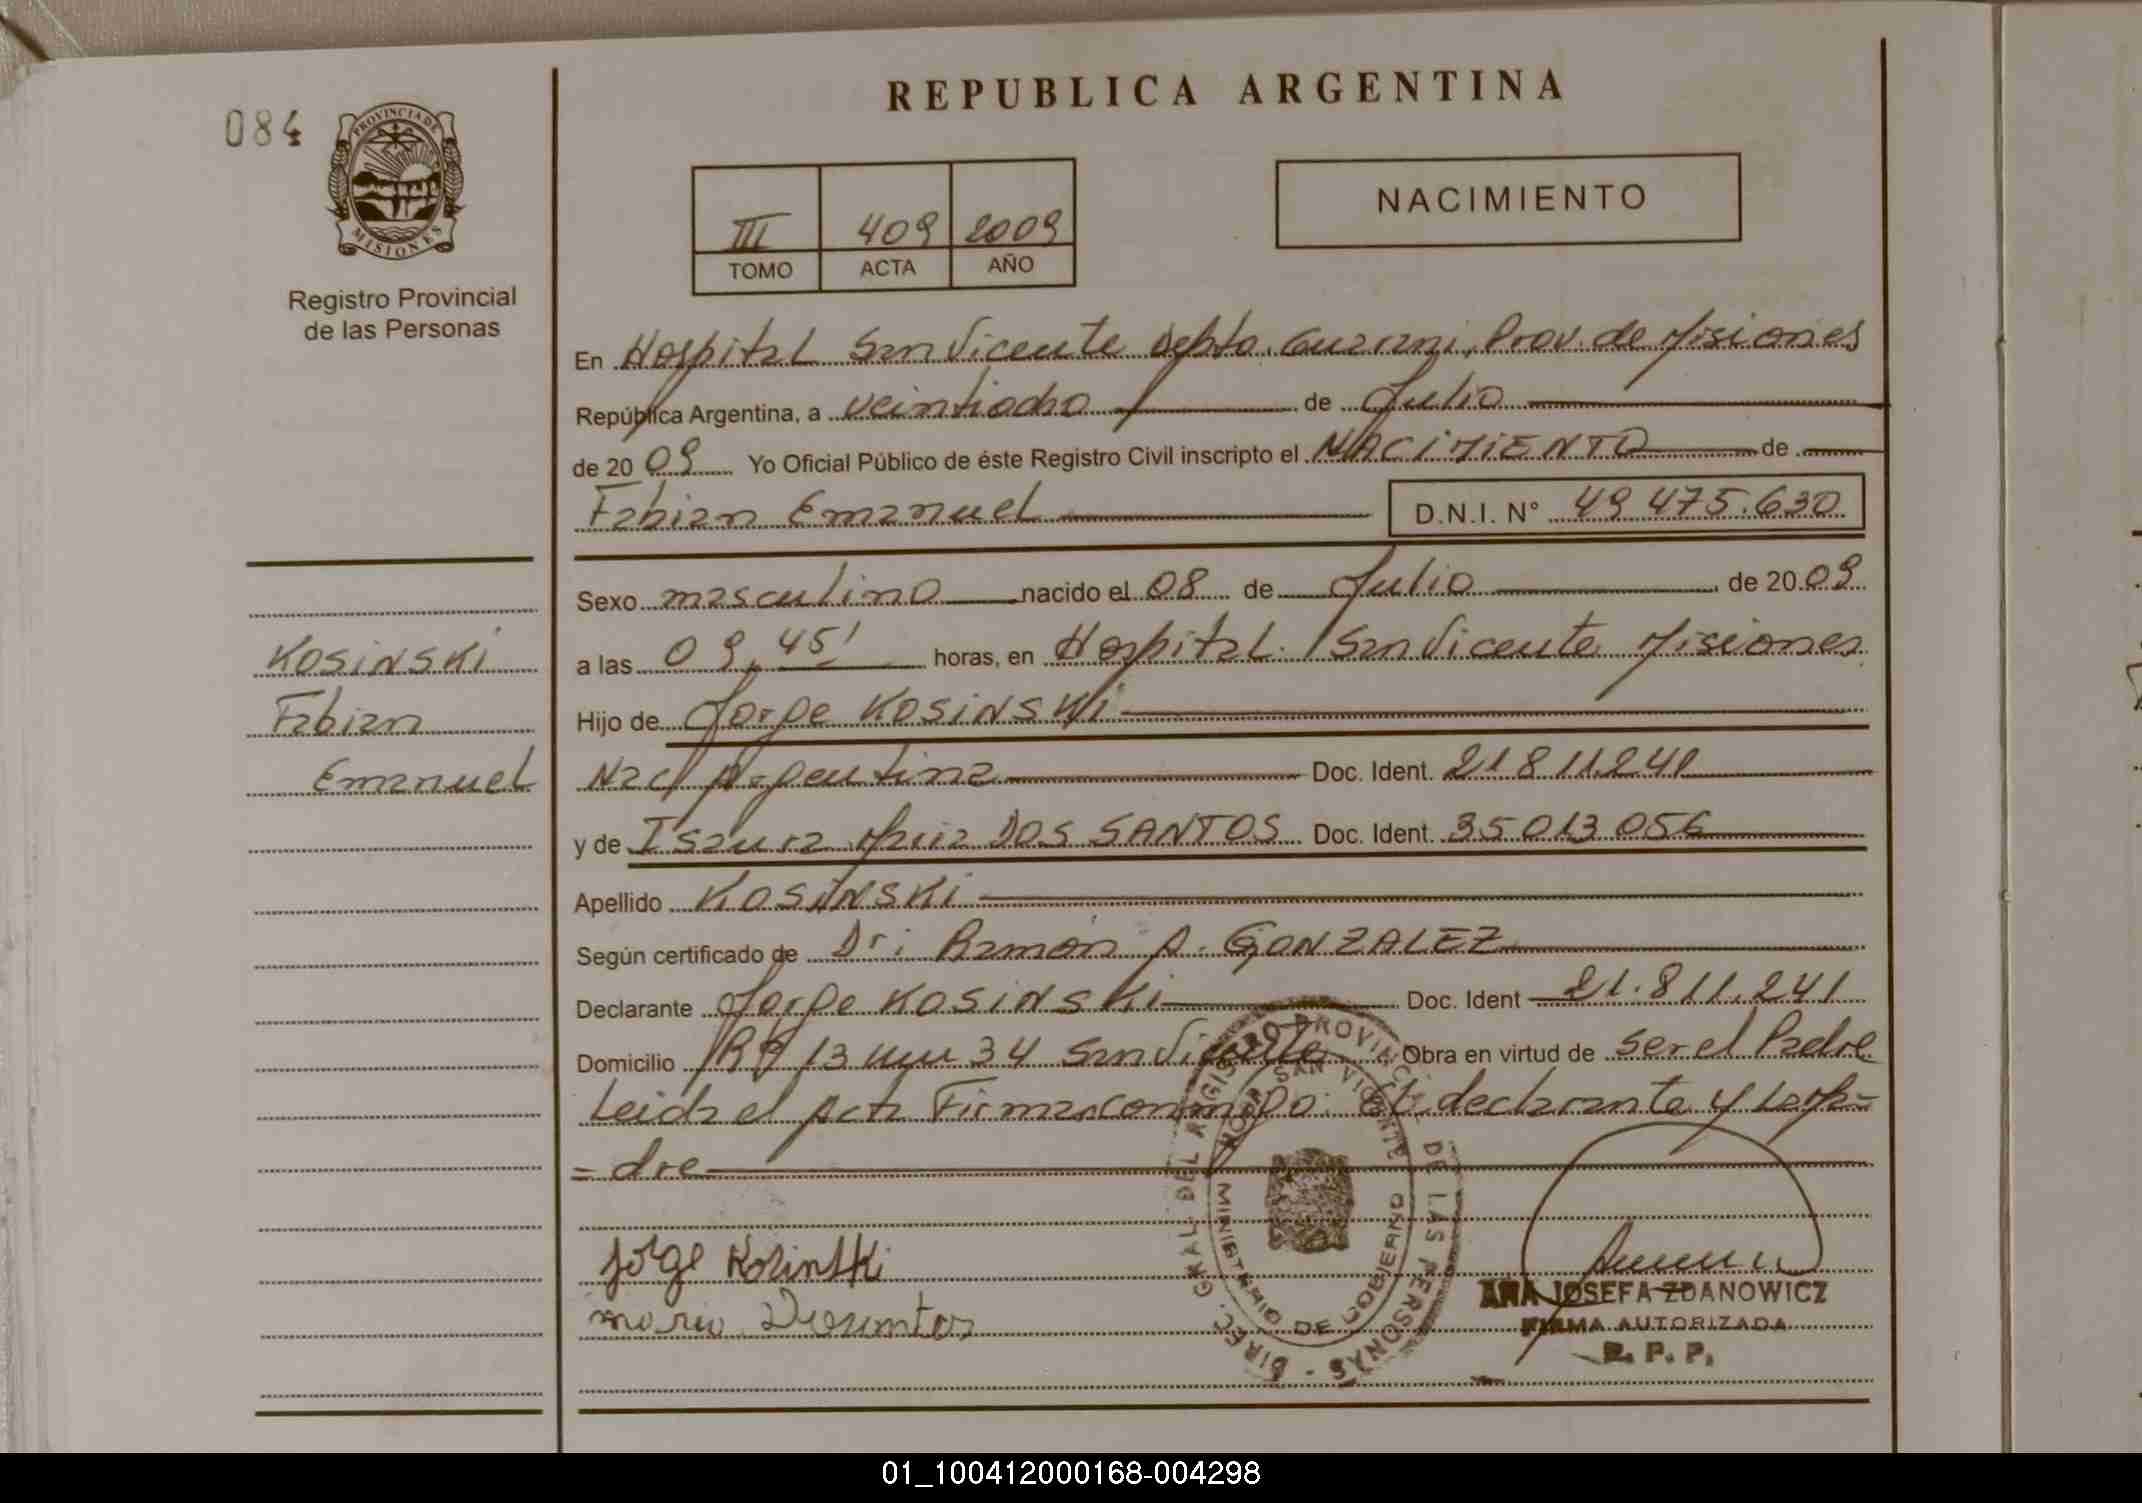 REPUBLICA ARGENTINA
084
PROVINCIA DE
MISIONES
Registro Provincial
de las Personas
III 409 2009
TOMO ACTA AÑO
NACIMIENTO
En Hospital San Vicente Depto. Guarani, Prov. de Misiones
República Argentina, a veintiocho de Julio
de 2009 Yo Oficial Público de éste Registro Civil inscripto el NACIMIENTO de
Fabian Emanuel D.N.I. N° 49 475.630
Sexo masculino nacido el 08 de Julio de 2009
a las 09,45' horas, en Hospital San Vicente Misiones
Hijo de Jorge KOSINSKI
Nac/ Argentina Doc. Ident. 21811241
y de Isaura DOS SANTOS Doc. Ident. 35013056
Apellido KOSINSKI
Según certificado de Dr: Ramón A. GONZALEZ
Declarante Jorge KOSINSKI Doc. Ident 21.811.241
Domicilio RP 13 km 34 San Vicente Obra en virtud de ser el Padre
Leida el Acta Firman conmigo: El declarante y la ma=
=dre
KOSINSKI
Fabian
Emanuel
Jorge Kosinski
maria Dosantos
DIREC. GRAL. DEL REGISTRO PROVINCIAL DE LAS PERSONAS
SAN VICENTE
MINISTERIO DE GOBIERNO
ANA JOSEFA ZDANOWICZ
FIRMA AUTORIZADA
R. P. P.
01_100412000168-004298